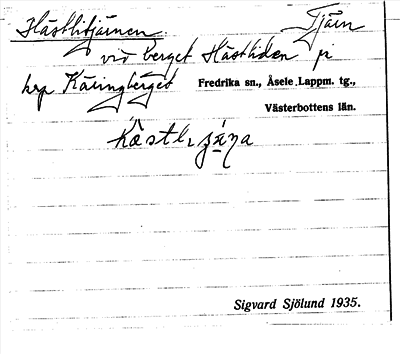 Hästlitjärnen. Tjärn
vid berget Hästliden på
krp Käringberget Fredrika sn., Åsele Lappm. tg.,
Västerbottens län.
Sigvard Sjölund 1935.